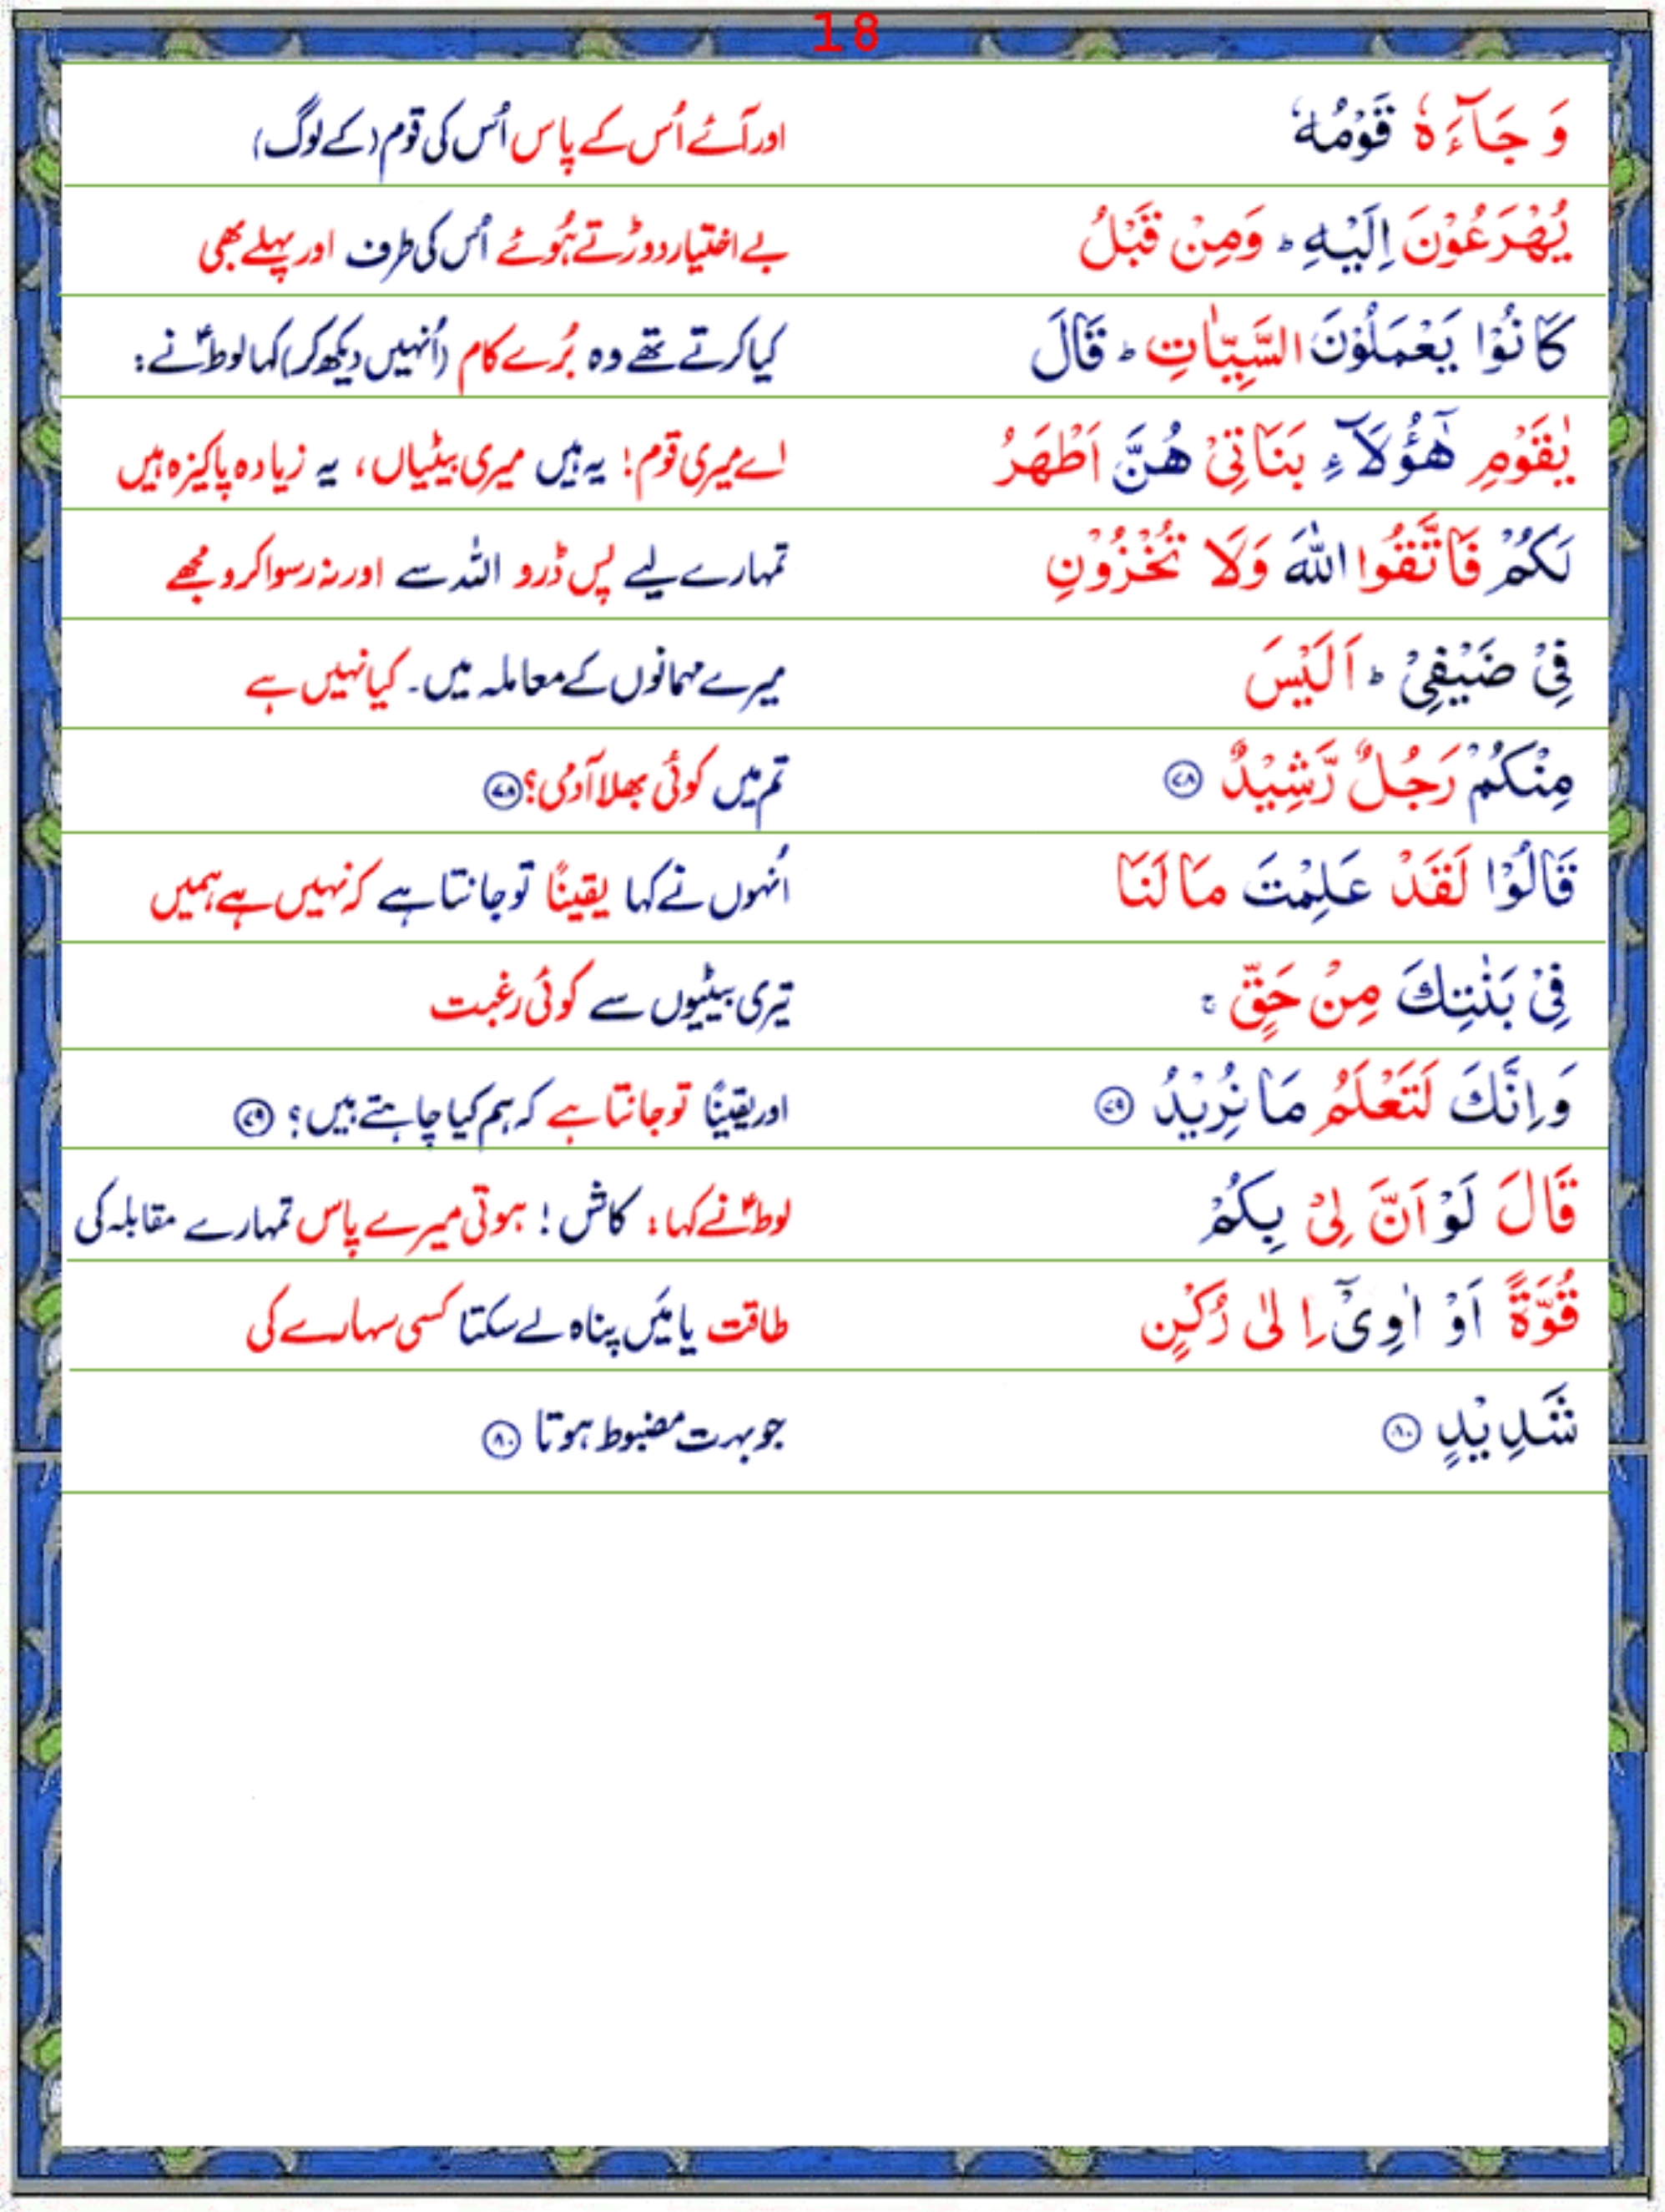 18
وَ جَآءَهٗ قَوْمُهٗ اور آئے اُس کے پاس اُس کی قوم (کے لوگ)
يُهْرَعُوْنَ اِلَيْهِ ؕ وَمِنْ قَبْلُ بے اختیار دوڑتے ہُوئے اُس کی طرف اور پہلے بھی
كَانُوْا يَعْمَلُوْنَ السَّيِّاٰتِ ؕ قَالَ کیا کرتے تھے وہ بُرے کام (اُنہیں دیکھ کر) کہا لوطؑ نے :
يٰقَوْمِ هٰٓؤُلَآءِ بَنَاتِيْ هُنَّ اَطْهَرُ اے میری قوم! یہ ہیں میری بیٹیاں، یہ زیادہ پاکیزہ ہیں
لَكُمْ فَاتَّقُوا اللّٰهَ وَلَا تُخْزُوْنِ تمہارے لیے پس ڈرو اللہ سے اور نہ رسوا کرو مجھے
فِيْ ضَيْفِيْ ؕ اَلَيْسَ میرے مہمانوں کے معاملہ میں۔ کیا نہیں ہے
مِنْكُمْ رَجُلٌ رَّشِيْدٌ ﴿۷۸﴾ تم میں کوئی بھلا آدمی؟ ﴿۷۸﴾
قَالُوْا لَقَدْ عَلِمْتَ مَا لَنَا اُنہوں نے کہا یقیناً تو جانتا ہے کہ نہیں ہے ہمیں
فِيْ بَنٰتِكَ مِنْ حَقٍّ ۚ تیری بیٹیوں سے کوئی رغبت
وَاِنَّكَ لَتَعْلَمُ مَا نُرِيْدُ ﴿۷۹﴾ اور یقیناً تو جانتا ہے کہ ہم کیا چاہتے ہیں؟ ﴿۷۹﴾
قَالَ لَوْ اَنَّ لِيْ بِكُمْ لوطؑ نے کہا : کاش ! ہوتی میرے پاس تمہارے مقابلہ کی
قُوَّةً اَوْ اٰوِيْٓ اِلٰى رُكْنٍ طاقت یا مَیں پناہ لے سکتا کسی سہارے کی
شَدِيْدٍ ﴿۸۰﴾ جو بہت مضبوط ہوتا ﴿۸۰﴾